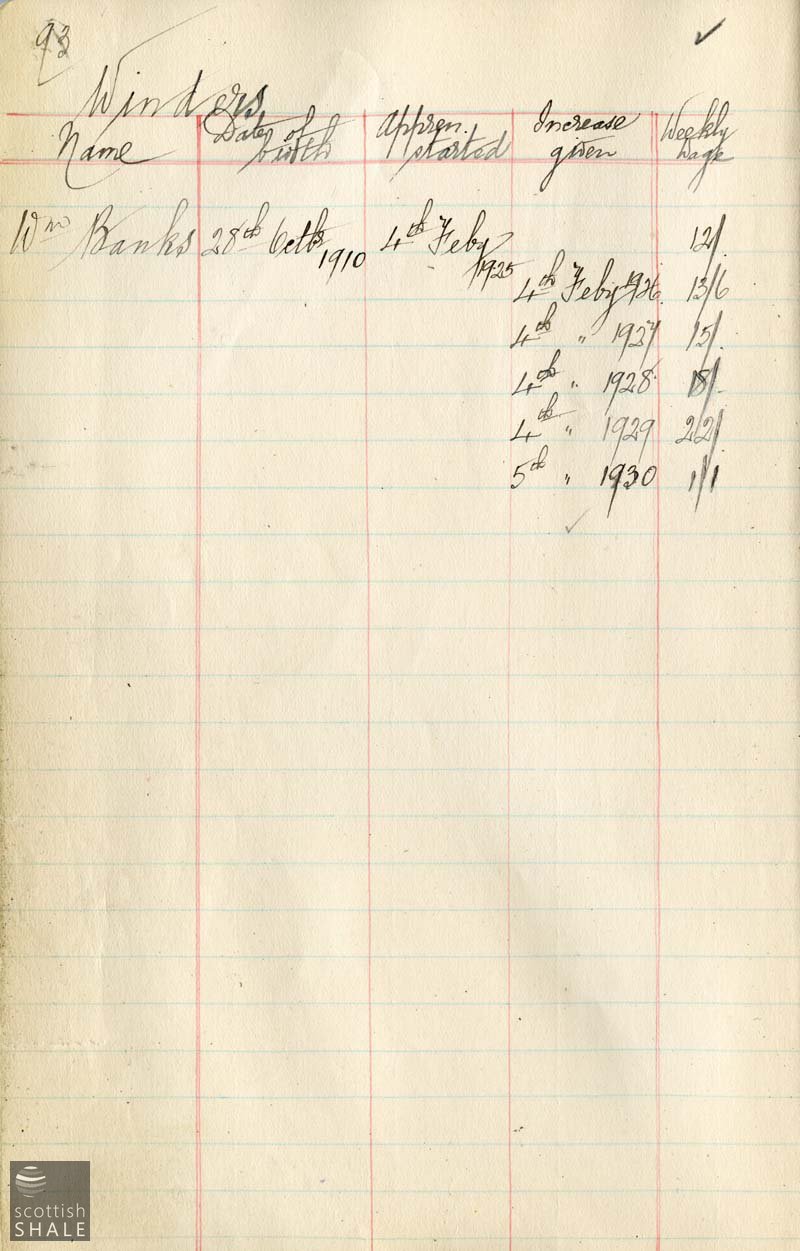 93
Winders
Name Date of birth Appren. started Increase given Weekly Wage
Wm Banks 28th Octbr 1910 4th Feby 1925 12/.
4th Feby 1926. 13/6
4th " 1927 15/.
4th " 1928 18/-
4th " 1929 22/
5th " 1930 1/1
scottish
SHALE